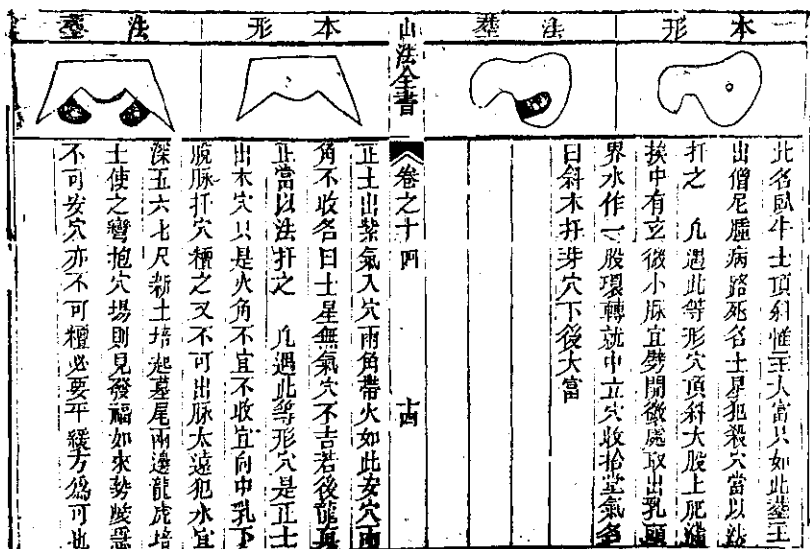 本形
法塟
此名臥牛土頂斜惟主人富只如此塟主
出僧尼腫病路死名土星犯殺穴當以
扦之 凡遇此等形穴頂斜大股上肥
挨中有立微小脉宜劈開微處取出乳頭
界水作一股環轉就中立穴收拾堂氣名
曰斜木扦芽穴下後大富
山法全書
卷之十四
十四
本形
法塟
正土出紫氣入穴兩角帶火如此安穴兩
角不收名曰土星無氣穴不吉若後龍
正當以法扦之 凡遇此等形穴是正土
出木穴只是火角不宜不收宜向中乳下
脫脉扦穴種之又不可出脉太遠犯水宜
深五六七尺新土培起墓尾兩邊龍虎培
土使之彎抱穴場則見發福如來勢
不可安穴亦不可種必要平緩方為可也